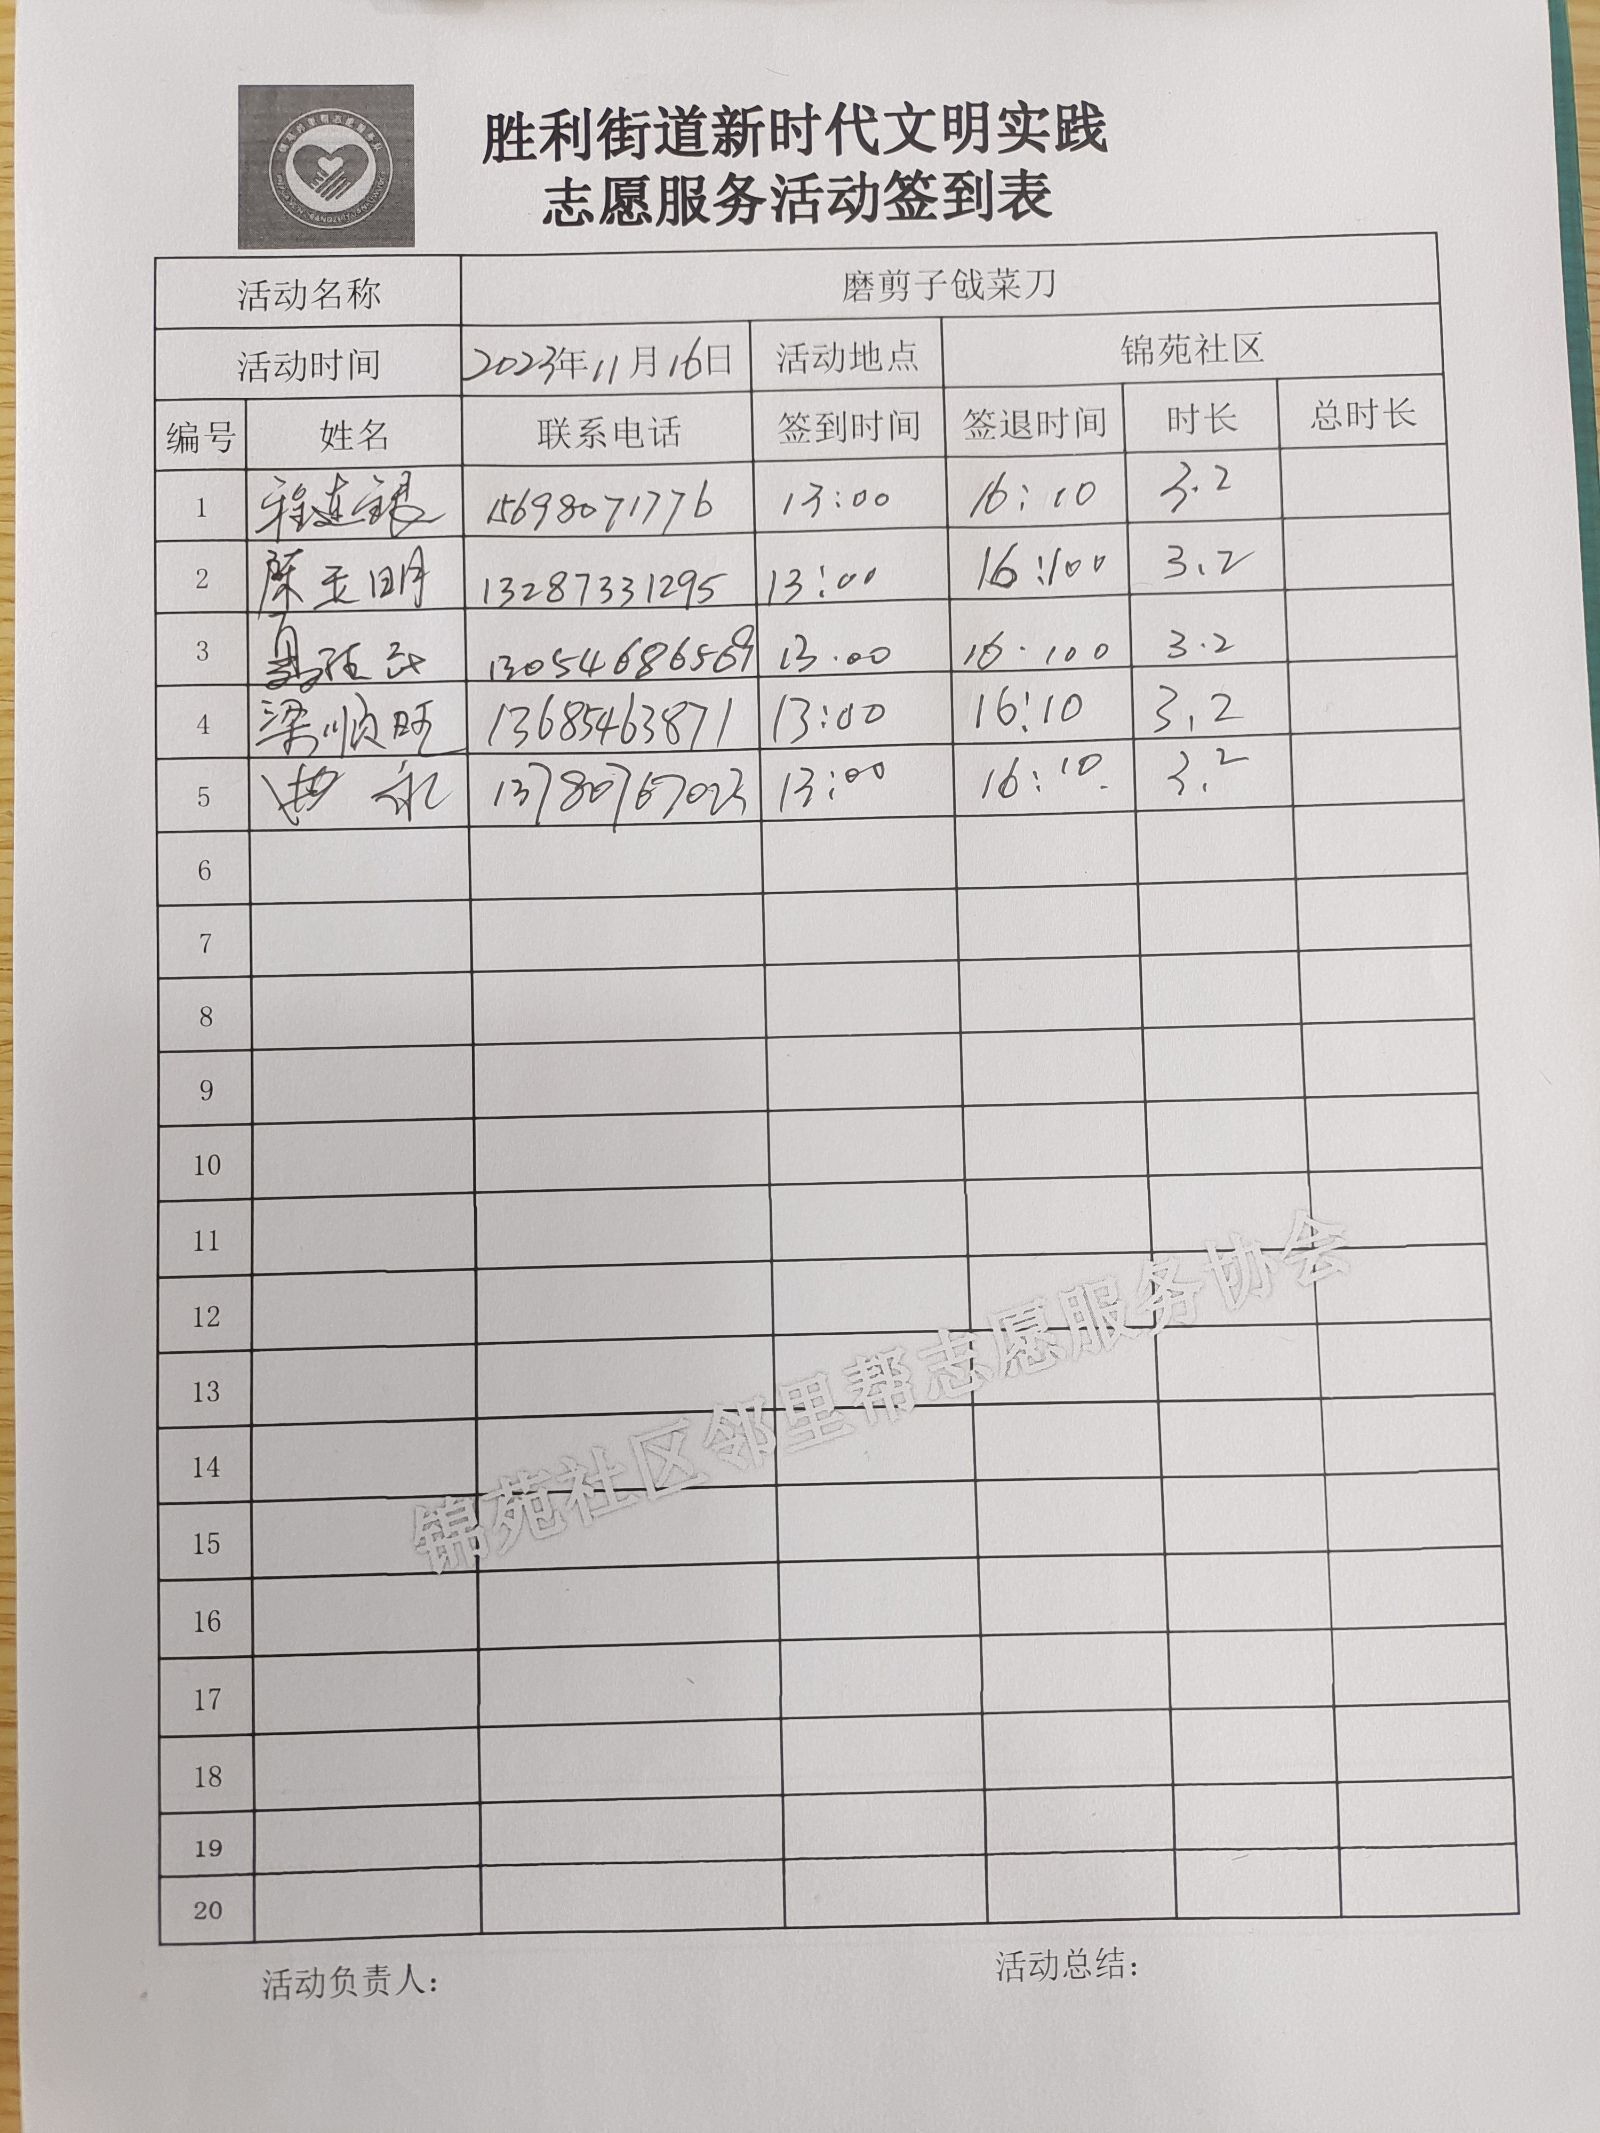 胜利街道新时代文明实践
志愿服务活动签到表
活动名称 磨剪子戗菜刀
活动时间 2023年11月16日 活动地点 锦苑社区
编号 姓名 联系电话 签到时间 签退时间 时长 总时长
1 程连银 15698071776 13:00 16:10 3.2
2 陈玉明 13287331295 13:00 16:100 3.2
3 13054686569 13:00 16:100 3.2
4 梁顺旺 13685463871 13:00 16:10 3.2
5 13780767023 13:00 16:10 3.2
6
7
8
9
10
11
12
13
14
15
16
17
18
19
20
锦苑社区邻里帮志愿服务协会
活动负责人： 活动总结：